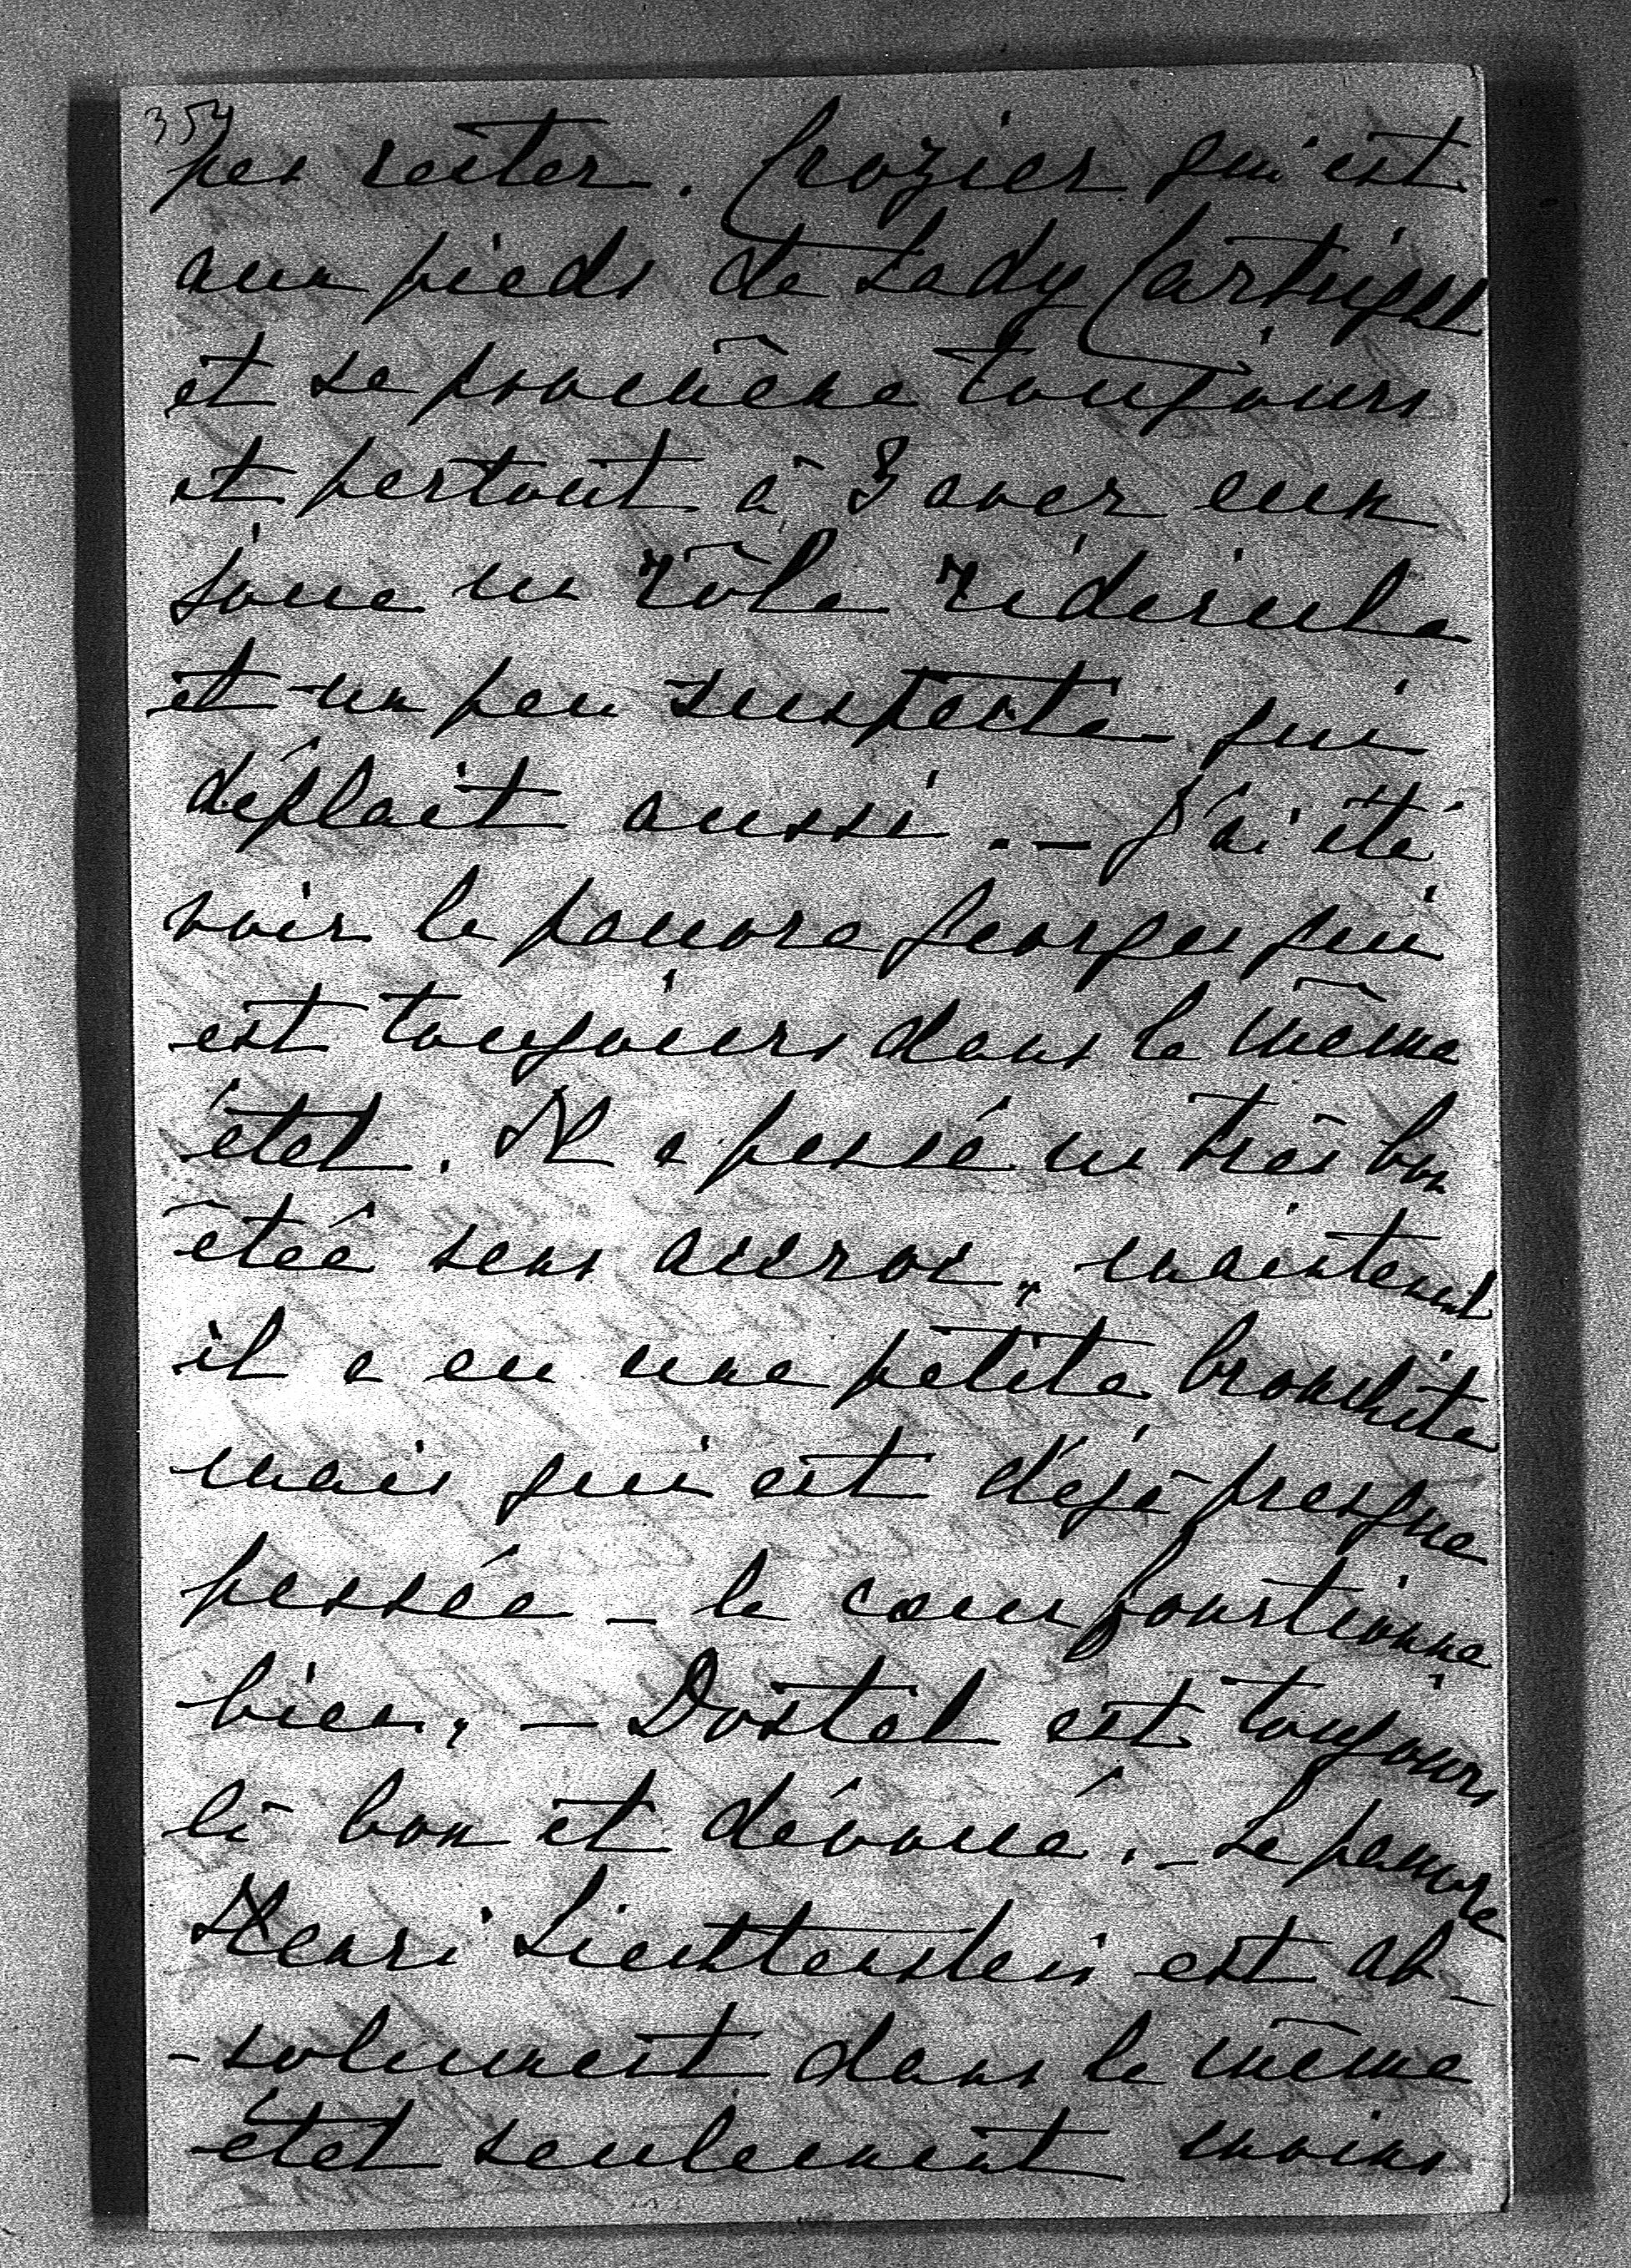 354
pas rester. Crozier qui est
aux pieds de Lady Cartright
et se promène toujours
et partout à 3 avec eux
joue un rôle ridicule
et un peu suspecte qui
déplait aussi. — J'ai été
voir le pauvre Georges qui
est toujours dans le même
état. Il a passé un très bon
étée sans accroc, maintenant
il a eu une petite bronchite
mais qui est déjà presque
passée — le coeur fonctionne
bien. — Dostal est toujours
si bon et dévoué. — Le pauvre
Henri Liechtenstein est ab-
-solument dans le même
état seulement moins